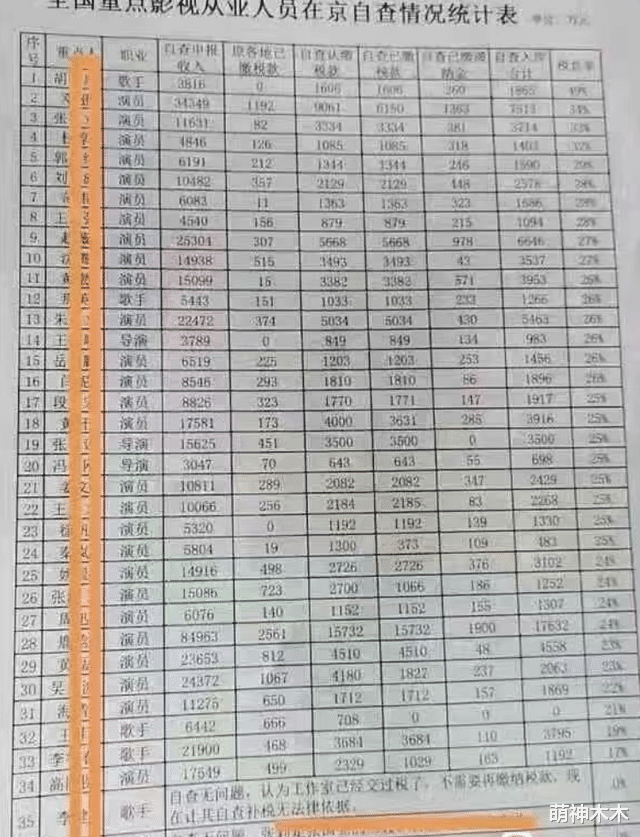 全国重点影视从业人员在京自查情况统计表 单位:万元
序号 重点人 职业 自查申报收入 原各地已缴税款 自查认缴税款 自查已缴税款 自查已缴滞纳金 自查入库合计 税款率
1 胡 歌手 3816 0 1606 1606 260 1865 49%
2 演员 34349 1192 9061 6150 1363 7513 34%
3 张 演员 11631 82 3334 3334 381 3714 33%
4 杜 演员 4846 126 1085 1085 318 1403 32%
5 郭 演员 6191 212 1344 1344 246 1590 29%
6 刘 演员 10482 357 2129 2129 448 2578 28%
7 演员 6083 11 1363 1363 323 1686 28%
8 王 演员 4540 156 879 879 215 1094 28%
9 赵 演员 25304 307 5668 5668 978 6646 27%
10 演员 14938 515 3493 3493 43 3537 27%
11 黄 演员 15099 15 3382 3382 571 3953 26%
12 歌手 5443 151 1033 1033 233 1266 26%
13 朱 演员 22472 374 5034 5034 430 5463 26%
14 王 导演 3789 0 849 849 134 983 26%
15 岳 演员 6519 225 1203 1203 253 1456 26%
16 闫 演员 8546 293 1810 1810 86 1896 26%
17 段 演员 8826 323 1770 1771 147 1917 25%
18 黄 演员 17581 173 4000 3631 285 3916 25%
19 张 导演 15625 451 3500 3500 0 3500 25%
20 冯 导演 3047 70 643 643 55 698 25%
21 姜 文 演员 10811 289 2082 2082 347 2429 25%
22 王 演员 10066 256 2184 2185 83 2268 25%
23 演员 5320 0 1192 1192 139 1330 25%
24 秦 演员 5804 19 1300 373 109 483 25%
25 姚 演员 14916 498 2726 2726 376 3102 24%
26 张 演员 15086 723 2700 1066 186 1252 24%
27 周 演员 6076 140 1152 1152 155 1307 24%
28 演员 84963 2561 15732 15732 1900 17632 24%
29 黄 演员 23653 812 4510 4510 48 4558 23%
30 吴 演员 24372 1067 4180 1827 237 2063 23%
31 海 演员 11275 650 1712 1712 157 1869 22%
32 王 歌手 6442 666 708 0 0 0 21%
33 李 歌手 21900 468 3684 3684 110 3795 19%
34 高 演员 17549 499 2329 1029 163 1192 17%
35 李 歌手 自查无问题,认为工作室已经交过税了,不需要再缴纳税款,现 0%
在让其自查补税无法律依据。
自查无问题
萌神木木